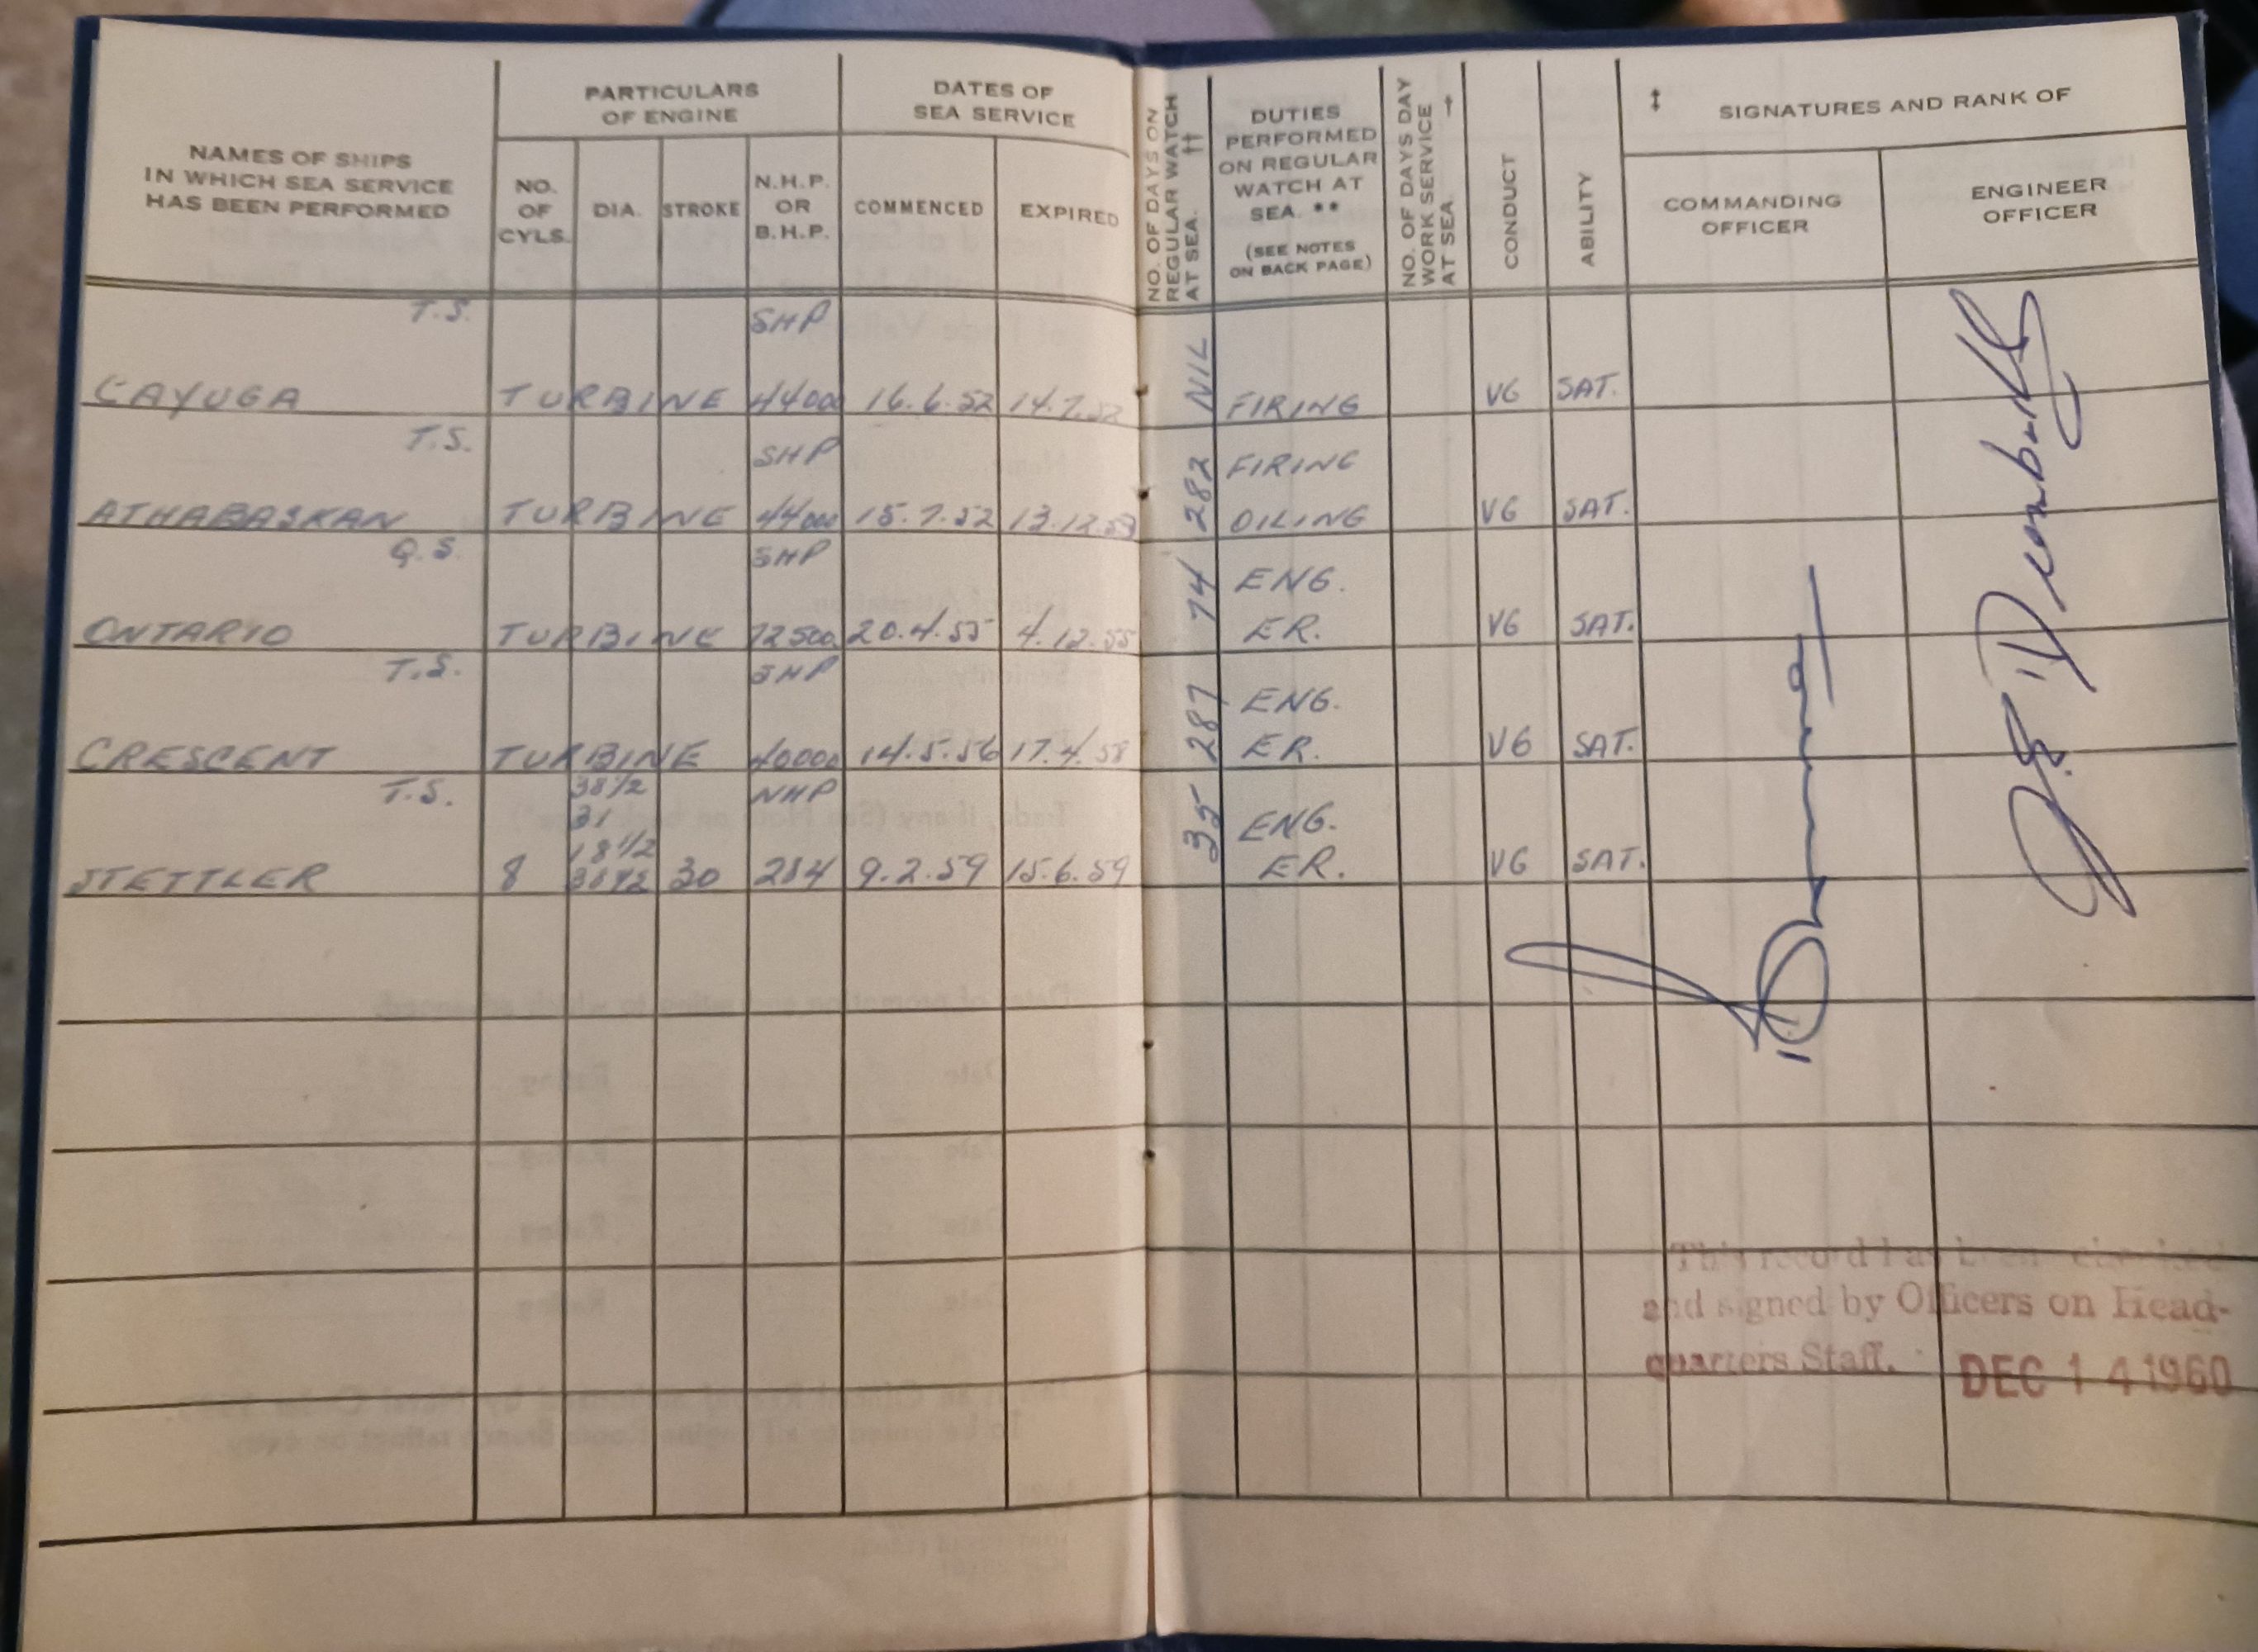 NAMES OF SHIPS
IN WHICH SEA SERVICE
HAS BEEN PERFORMED
PARTICULARS
OF ENGINE
NO.
OF
CYLS.
DIA.
STROKE
N.H.P.
OR
B.H.P.
DATES OF
SEA SERVICE
COMMENCED
EXPIRED
NO. OF DAYS ON
REGULAR WATCH
AT SEA. ††
DUTIES
PERFORMED
ON REGULAR
WATCH AT
SEA. **
(SEE NOTES
ON BACK PAGE)
NO. OF DAYS DAY
WORK SERVICE
AT SEA. †
CONDUCT
ABILITY
‡ SIGNATURES AND RANK OF
COMMANDING
OFFICER
ENGINEER
OFFICER
T.S. SHP
CAYUGA TURBINE 44000 16.6.52 14.7.52 NIL FIRING VG SAT.
T.S. SHP FIRING
ATHABASKAN TURBINE 44000 15.7.52 13.12.53 282 OILING VG SAT.
Q.S. SHP ENG.
ONTARIO TURBINE 72500 20.4.55 4.12.55 74 ER. VG SAT.
T.S. SHP ENG.
CRESCENT TURBINE 40000 14.5.56 17.4.58 287 ER. VG SAT.
T.S. 38½ NHP
31 ENG.
18½
STETTLER 8 38½ 30 284 9.2.59 15.6.59 35 ER. VG SAT.
This record has been checked
and signed by Officers on Head-
quarters Staff.
DEC 14 1960